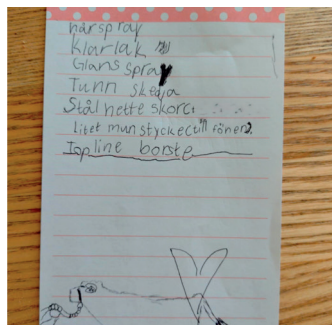 hårspray
Klarlak
Glans spray
Tunn skedja
Stål nette skorc.
litet mun stycke till fönen).
Topline borste